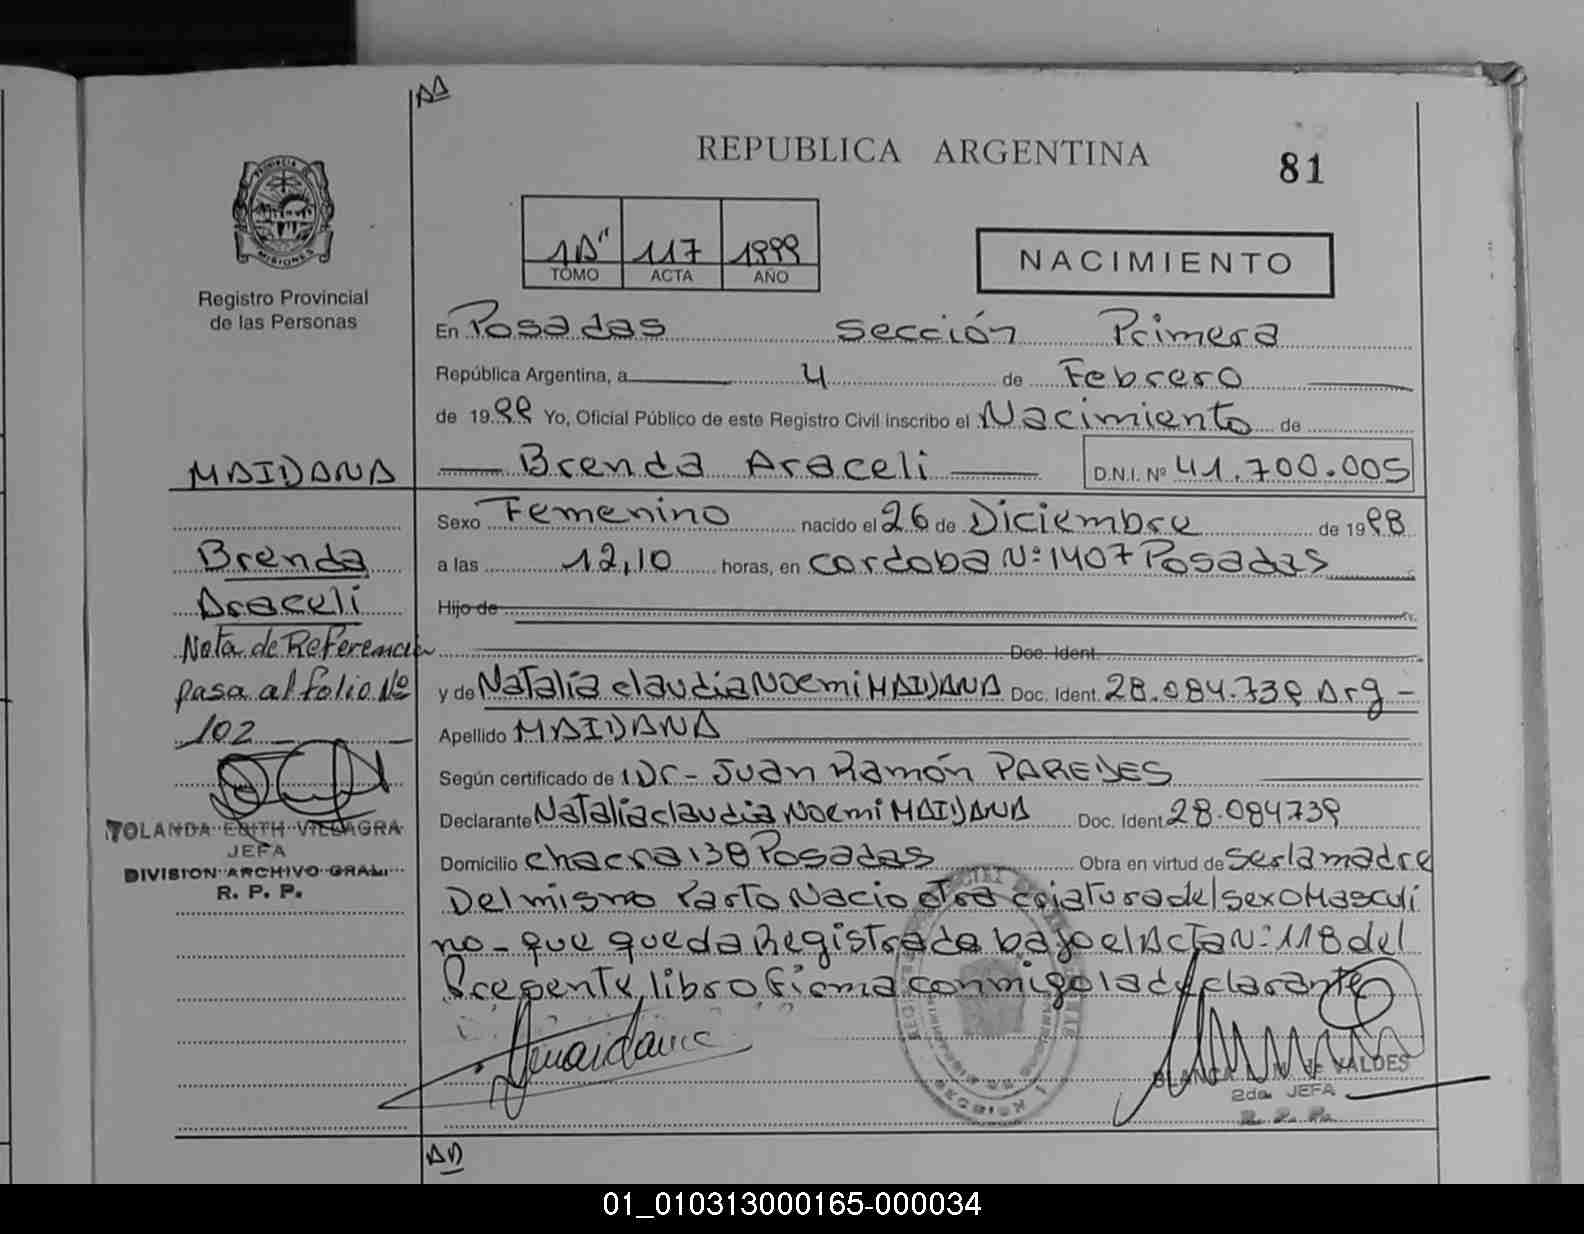 REPUBLICA ARGENTINA
81
PROVINCIA
MISIONES
Registro Provincial
de las Personas
1A" 117 1999
TOMO ACTA AÑO
NACIMIENTO
En Posadas Sección Primera
República Argentina, a 4 de Febrero
de 1999 Yo, Oficial Público de este Registro Civil inscribo el Nacimiento de
Brenda Araceli D.N.I. Nº 41.700.005
Sexo Femenino nacido el 26 de Diciembre de 1998
a las 12,10 horas, en Cordoba Nº 1407 Posadas
Hijo de
Doc. Ident.
y de Natalia Claudia Noemi MAIDANA Doc. Ident. 28.084.739 Arg -
Apellido MAIDANA
Según certificado de Dr - Juan Ramón PAREDES
Declarante Natalia Claudia Noemi MAIDANA Doc. Ident 28.084739
Domicilio Chacra 138 Posadas Obra en virtud de ser la madre
Del mismo Parto Nacio otra criatura del sexo Masculi
no - que queda Registrada bajo el Acta Nº 118 del
Presente libro firma conmigo la declarante
MAIDANA
Brenda
Araceli
Nota de Referencia
pasa al folio Nº
102
YOLANDA EDITH VILLAGRA
JEFA
DIVISION ARCHIVO GRAL.
R. P. P.
VALDES
2da. JEFA
R. P. P.
01_010313000165-000034